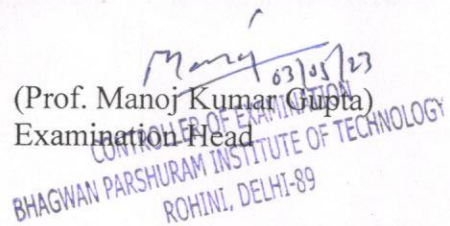 Manoj
03/05/23
(Prof. Manoj Kumar Gupta)
Examination Head
CONTROLLER OF EXAMINATION
BHAGWAN PARSHURAM INSTITUTE OF TECHNOLOGY
ROHINI, DELHI-89